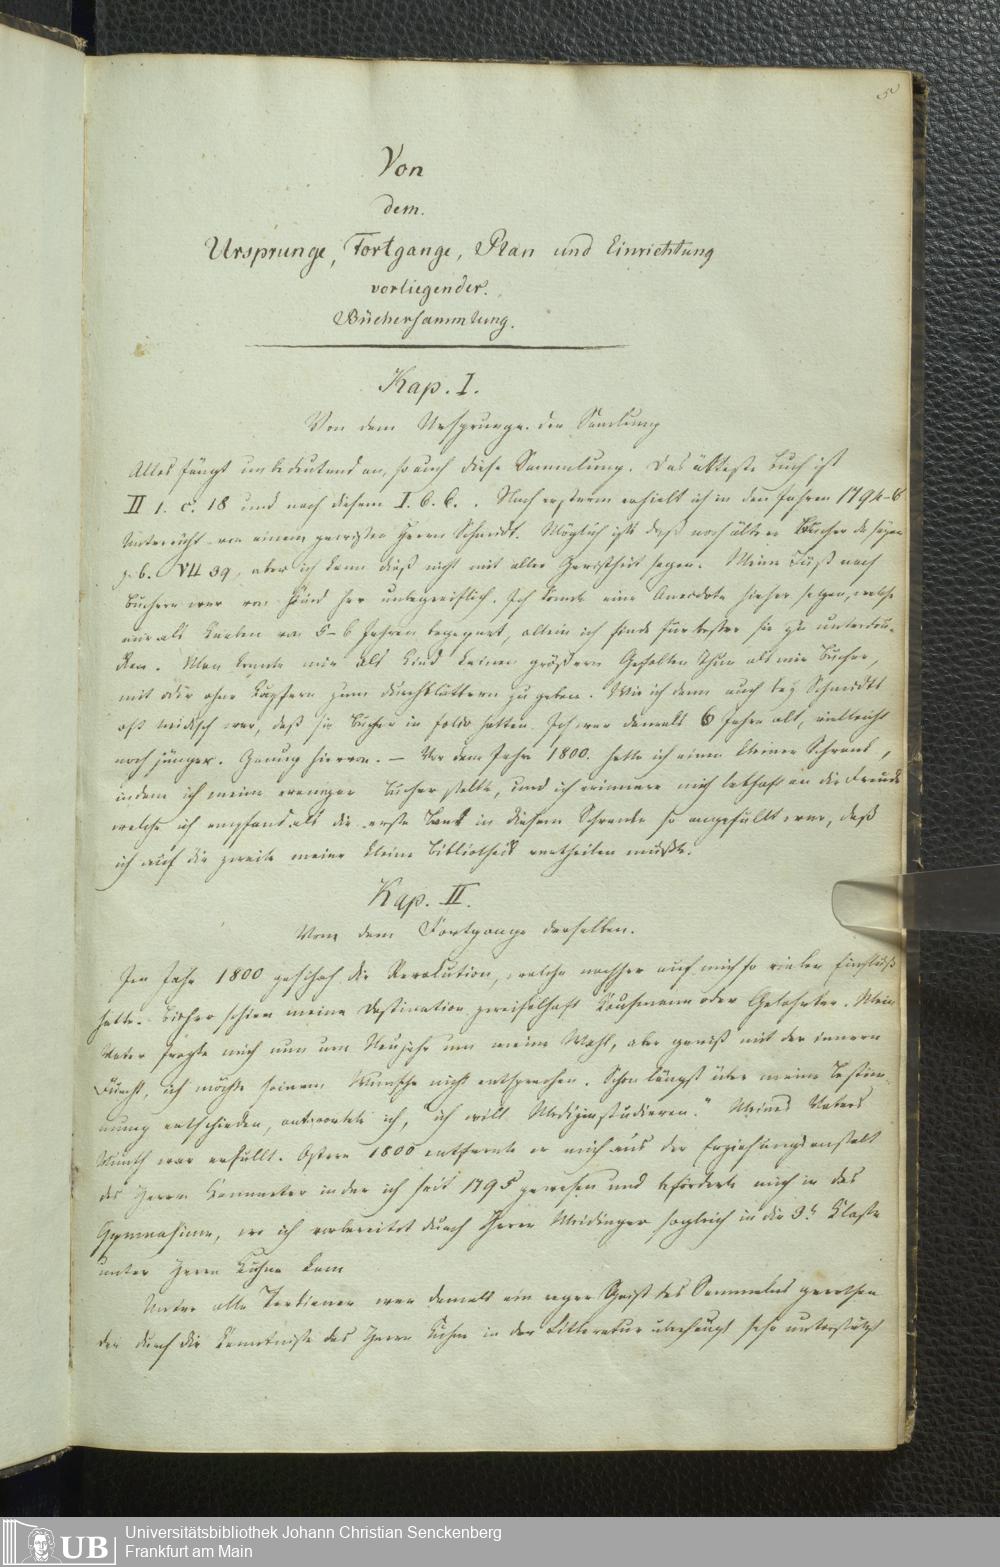 5
Von
dem.
Ursprunge, Fortgange, Plan und Einrichtung
vorliegender.
Büchersammlung.
Kap. I.
Von dem Ursprunge der Samlung
Alles fängt unbedeutend an, so auch diese Sammlung. Das älteste Buch ist
II 1. c. 18 und nach diesem I. 6. 6. . Nach ersterm erhielt ich in den Jahren 1794-6
Unterricht von einem gewissen Herrn Schmidt. Möglich ists daß noch ältere Bücher da seyen
z. b. VII 39, aber ich kann dieß nicht mit aller Gewißheit sagen. Meine Lust nach
Büchern war von Kind her unbegreiflich. Ich könnte eine Anecdote hieher setzen, welche
mir als Knaben von 5-6 Jahren begegnet, allein ich finde für besser sie zu unterdrü-
cken. Man konnte mir als Kind keinen größern Gefallen thun als mir Bücher,
mit oder ohne Kupfern zum durchblättern zu geben. Wie ich denn auch bey Schmidts
oft neidisch war, daß sie Bücher in folio hatten. Ich war damals 6 Jahre alt, vielleicht
noch jünger. Genug hiervon. – Vor dem Jahr 1800. hatte ich einen kleinen Schrank,
indem ich meine wenigen Bücher stellte, und ich erinnere mich lebhaft an die Freude
welche ich empfand als die erste Bank in diesem Schranke so angefüllt war, daß
ich auf die zweite meine kleine Bibliothek vertheilen mußte.
Kap. II.
Von dem Fortgange derselben.
Im Jahr 1800 geschah die Revolution, welche nachher auf mich so vielen Einfluß
hatte. Bisher schien meine Destination zweifelhaft Kaufmann oder Gelehrter. Mein
Vater fragte mich nun um Neujahr um meine Wahl, aber gewiß mit der innern
Furcht, ich möchte seinem Wunsche nicht entsprechen. Schon längst über meine Bestim-
mung entschieden, antwortete ich, "ich will Medizin studieren." Meines Vaters
Wunsch war erfüllt. Ostern 1800 entfernte er mich aus der Erziehungsanstalt
des Herrn in der ich seit 1795 gewesen und beförderte mich in das
Gymnasium, wo ich vorbereitet durch Herrn Meidinger sogleich in die 3t Klasse
unter Herrn Kühn kam
Unter alle Tertianer war damals ein reger Geist des Sammelns gerathen
der durch die Kenntniße des Herrn Kühn in der Litteratur überhaupt sehr unterstützt
UB
Universitätsbibliothek Johann Christian Senckenberg
Frankfurt am Main